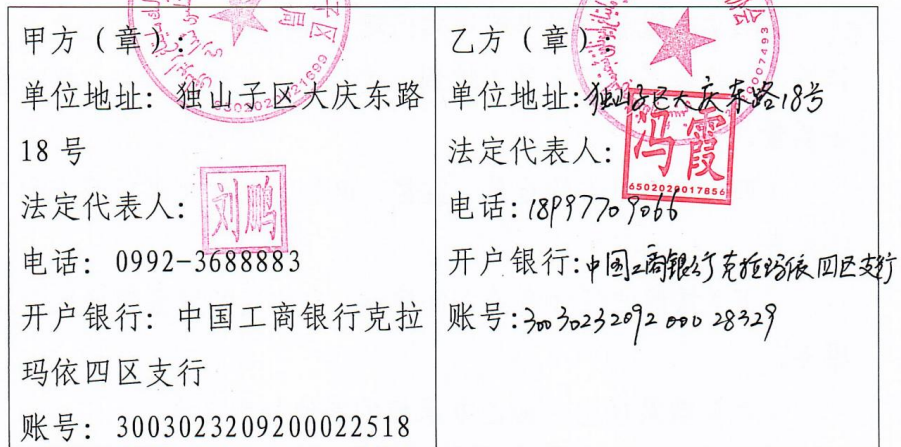 甲方（章）：
单位地址：独山子区大庆东路
18 号
法定代表人：
刘鹏
电话：0992-3688883
开户银行：中国工商银行克拉
玛依四区支行
账号：3003023209200022518
乙方（章）：
单位地址：独山子区大庆东路18号
法定代表人：
冯霞
6502020017856
电话：18997709066
开户银行：中国工商银行克拉玛依四区支行
账号：3003023209200028329